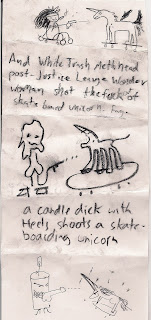 And White Trash Methhead
post-Justice League Wonder
woman shot the fuck out of
skate board unicorn.
a candle dick with
Heels shoots a skate-
boading unicorn